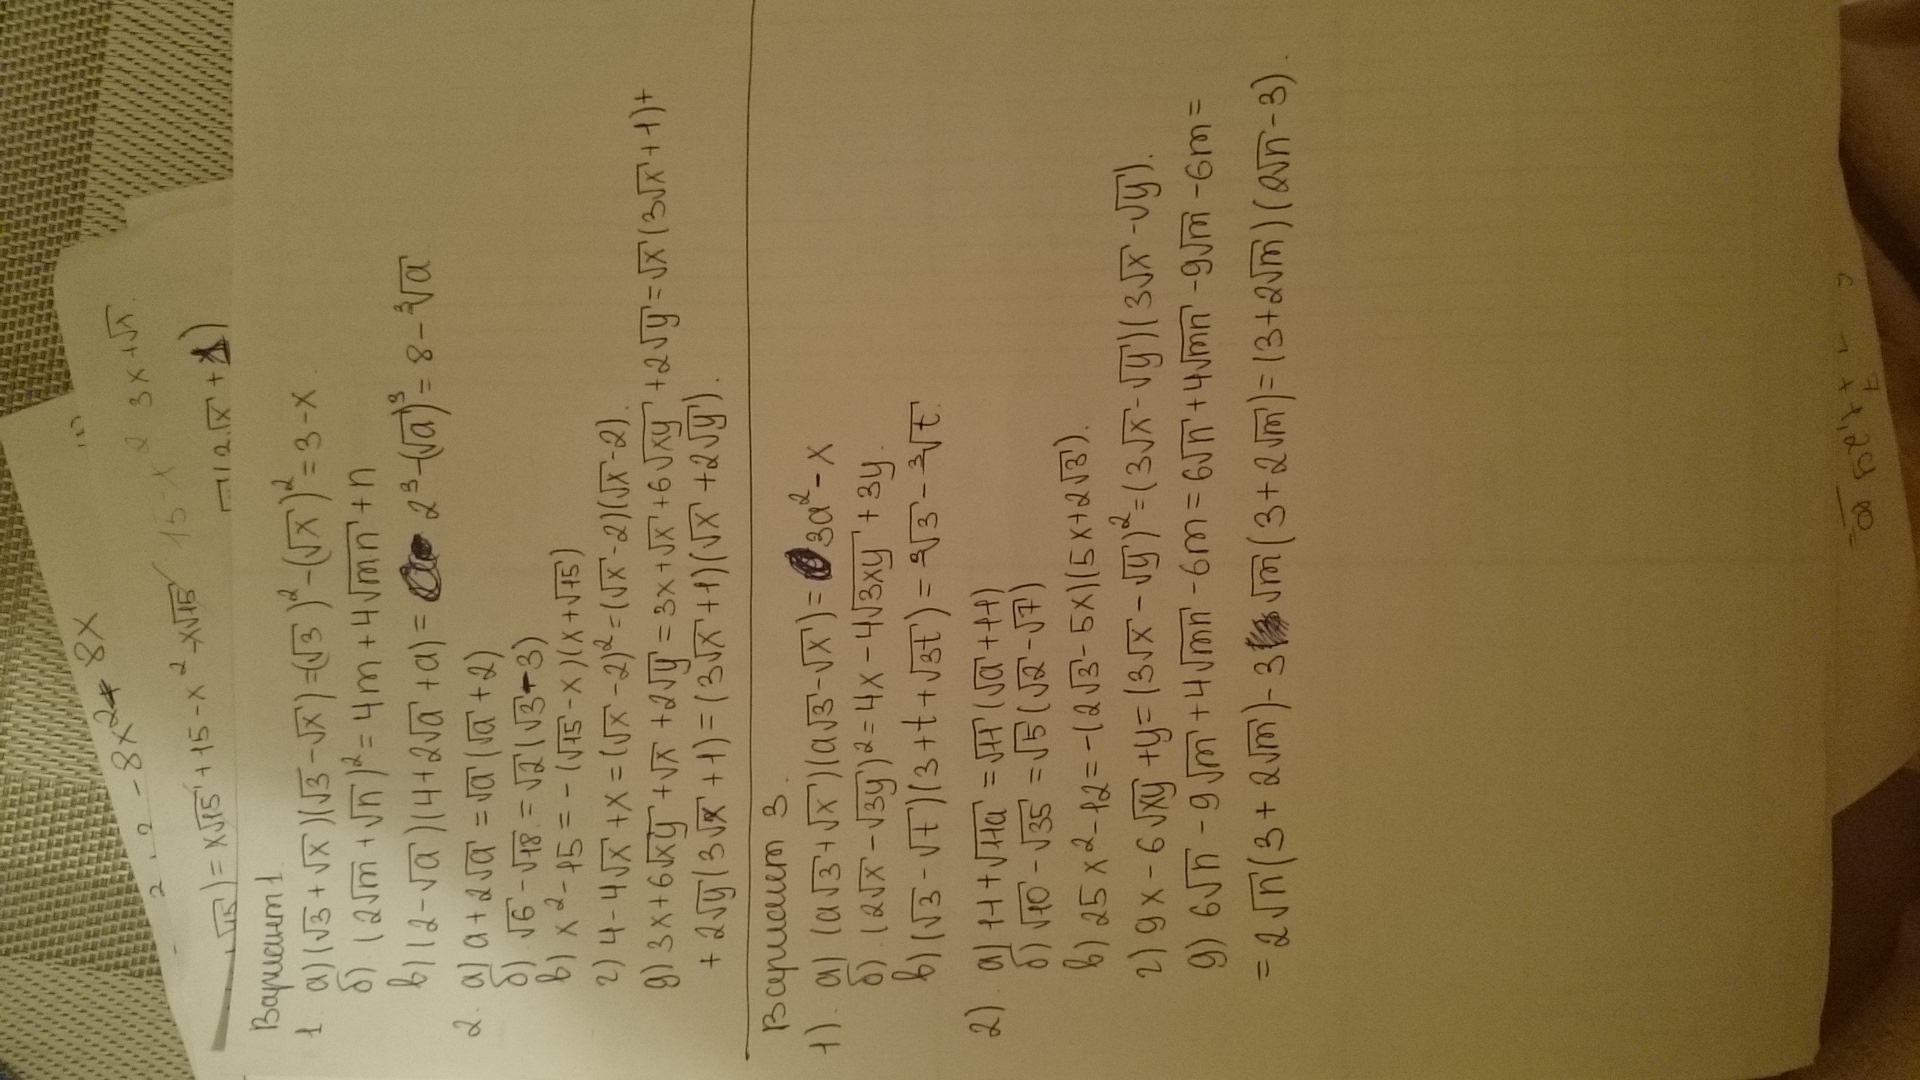 8x² - 8x
√15) = x√15 + 15 - x² - x√15 15 - x² 3x + √x
Вариант 1.
1. а) (√3 + √x)(√3 - √x) = (√3)² - (√x)² = 3 - x
б). (2√m + √n)² = 4m + 4√mn + n
в) (2 - √a)(4 + 2√a + a) = 2³ - (√a)³ = 8 - ³√a
2. а) a + 2√a = √a (√a + 2)
б). √6 - √18 = √2 (√3 - 3)
в) x² - 15 = - (√15 - x)(x + √15)
г) 4 - 4√x + x = (√x - 2)² = (√x - 2)(√x - 2).
д) 3x + 6√xy + √x + 2√y = 3x + √x + 6√xy + 2√y = √x (3√x + 1) +
+ 2√y (3√x + 1) = (3√x + 1)(√x + 2√y).
Вариант 3.
1). а) (a√3 + √x)(a√3 - √x) = 3a² - x
б). (2√x - √3y)² = 4x - 4√3xy + 3y.
в) (√3 - √t)(3 + t + √3t) = ³√3 - ³√t.
2). а) 11 + √11a = √11 (√a + 11)
б) √10 - √35 = √5 (√2 - √7)
в) 25x² - 12 = - (2√3 - 5x)(5x + 2√3).
г) 9x - 6√xy + y = (3√x - √y)² = (3√x - √y)(3√x - √y).
д) 6√n - 9√m + 4√mn - 6m = 6√n + 4√mn - 9√m - 6m =
= 2√n (3 + 2√m) - 3√m (3 + 2√m) = (3 + 2√m)(2√n - 3).